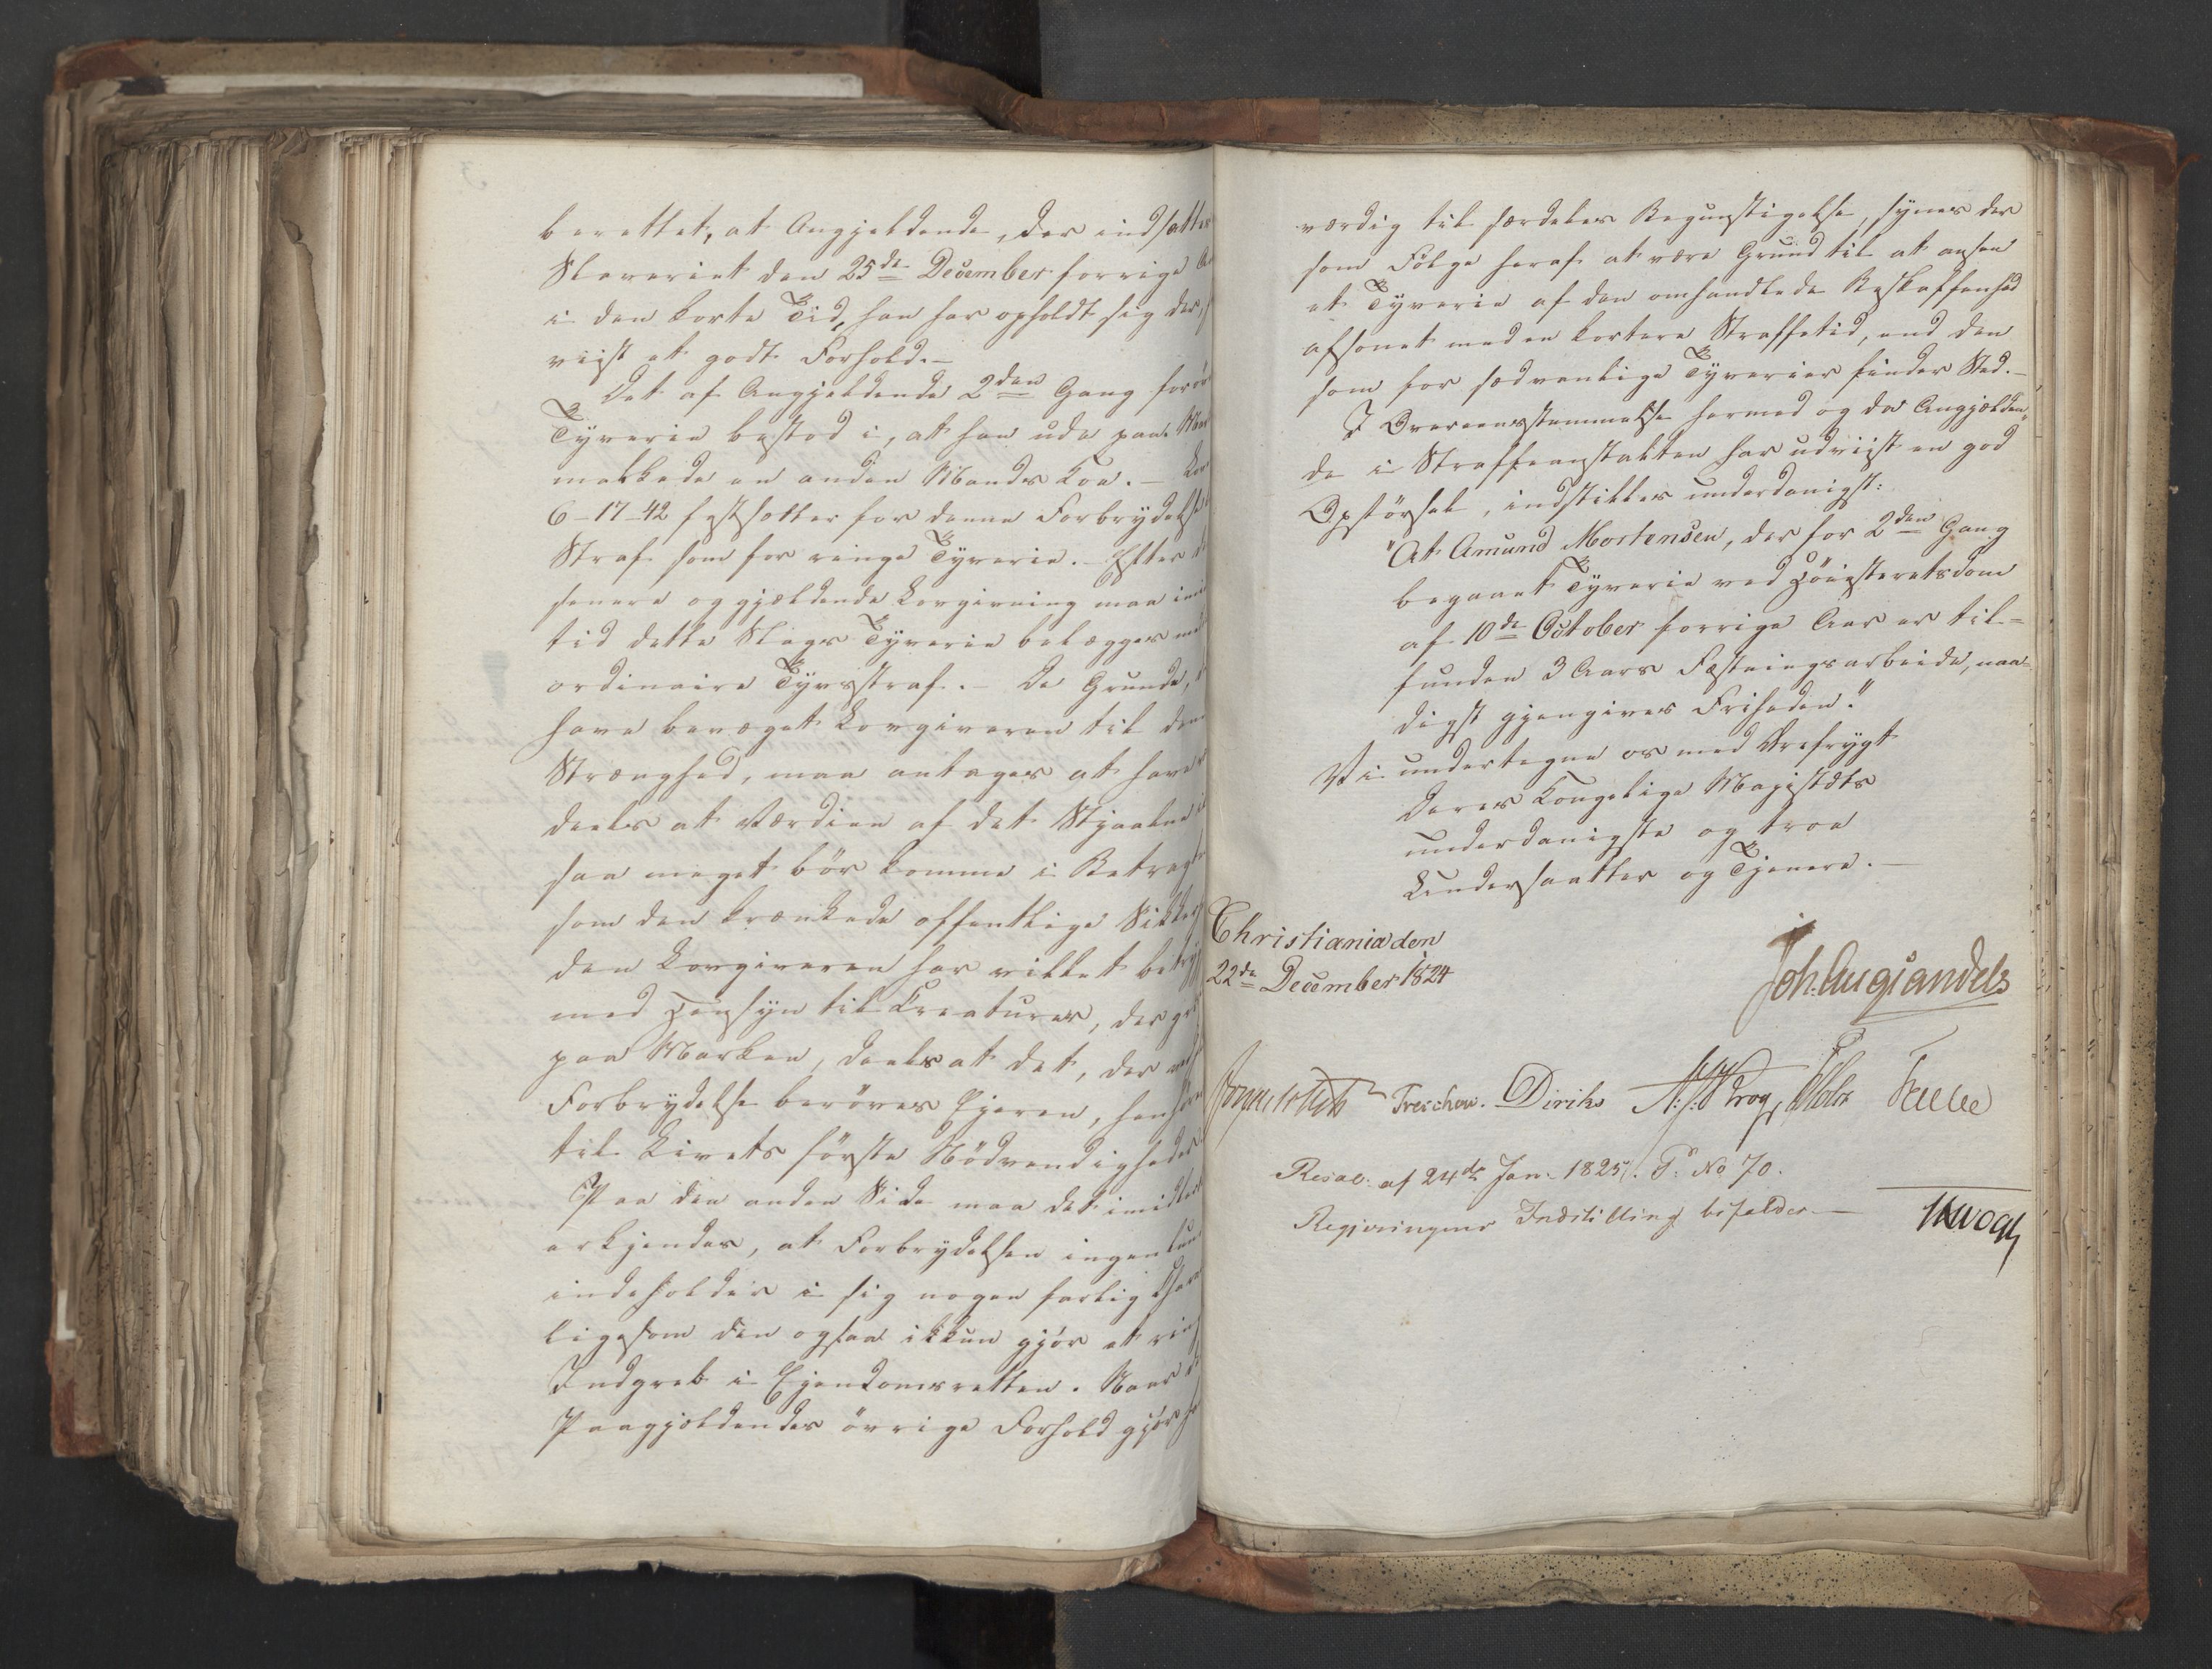 berettet, at Angjeldende, der indsattes
Slaveriet den 25de December forrige Aar
i den korte Tid, han har opholdt sig der,
viist et godt Forhold.–
Det af Angjeldende 2den Gang forøvede
Tyverie bestod i, at han ude paa Mar
malkede en anden Mands Koe. –
6–17–42 fastsetter for denne Forbrydelse
Straf som for ringe Tyverie. – Efter
senere og gjeldende Lovgivning maa imid
tid dette Slags Tyverie belægges med
ordinaire Tyvsstraf. – De Grunde,
have bevæget Lovgiveren til den
Strænghed, maa antages at have
deels at Værdien af det Stjaalne
saa meget bör komme i Betragt
som den krænkede offentlige Sikker
den Lovgiveren har villet betryg
med Hensyn til Creaturer, der gaae
paa Marken, deels at det, der ved
Forbrydelse beröves Ejeren, henhører
til Livets förste Nödvendigheder
Paa den anden Side maa det imidler
erkjendes, at Forbrydelsen ingenlun
indeholder i sig nogen farlig
ligesom den ogsaa ikkun gjör et ring
Indgreb i Ejendomsretten. Naar
Paagjeldendes övrige Forhold gjör
værdig til særdeles Begunstigelse, synes der
som Fölge heraf at være Grund til at ansee
et Tyverie af den omhandlede Beskaffenhed
afsonet med en kortere Straffetid, end den
som for sædvanlige Tyverier finder Sted.–
I Overeensstemmelse hermed og da Angjelden-
de i Straffeanstalten har udviist en god
Opförsel, indstilles underdanigst:
"At Amund Mortensen, der for 2den Gang
begaaet Tyverie ved Höiesteretsdom
af 10de October forrige Aar er til-
funden 3 Aars Fæstningsarbeide, naa-
digst gjengives Friheden."
Vi undertegne os med Ærefrygt
Deres Kongelige Majestæts
underdanigste og troe
Undersaatter og Tjenere. –
Christiania den
22de December 1824
Joh. Aug Sandels
Treschow. Diriks Krog
Resol. af 24de Jan. 1825. P. No 70.
Regjeringens Indstilling bifaldes. –
Vogt